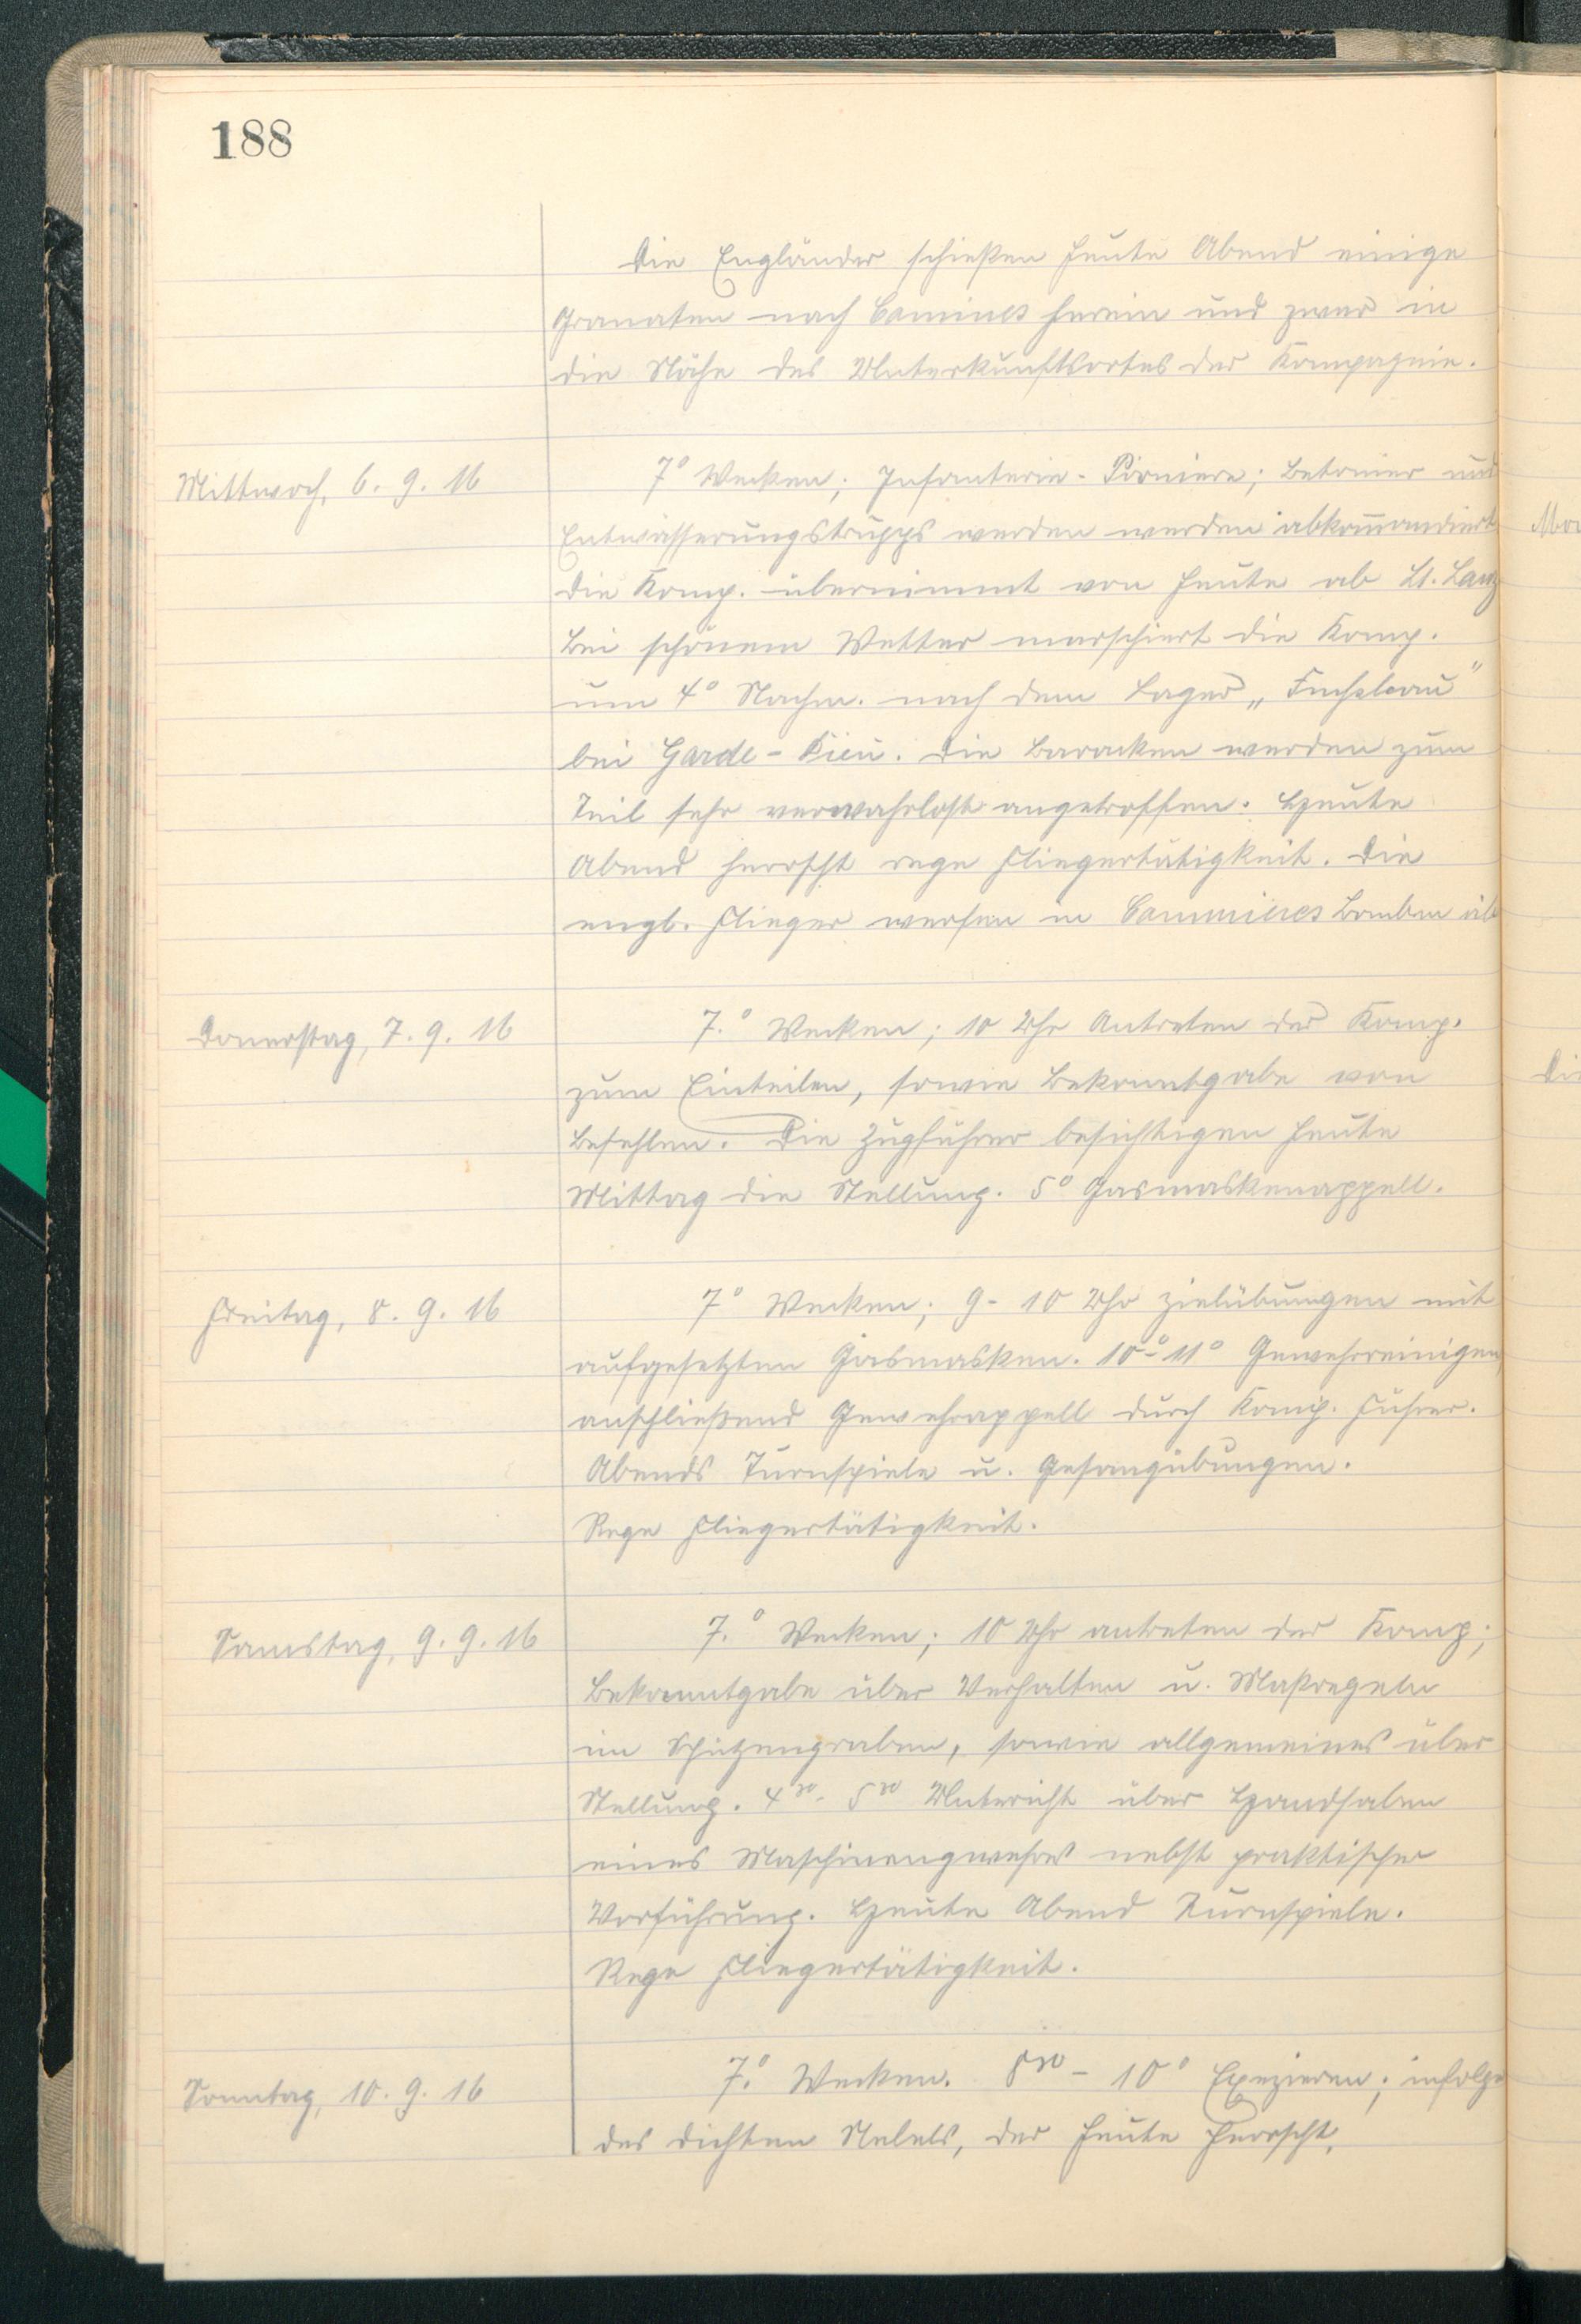 188
Die Engländer schießen heute Abend einige
Granaten nach Comines herein und zwar in
die Nähe des Unterkunftsortes der Kompagnie.
Mittwoch, 6. 9. 16
7⁰ Wecken; Infanterie-Pioniere; Betonier und
Entwässerungstrupps werden werden abkommandiert
die Komp. übernimmt von heute ab Lt. Lanz
Bei schönem Wetter marschiert die Komp.
um 4⁰ Nachm. nach dem Lager „Fuchsbau"
bei Garde-Dieu. Die Baracken werden zum
Teil sehr verwahrlost angetroffen. Heute
Abend herrscht rege Fliegertätigkeit. Die
engl. Flieger werfen in Commines Bomben ab
Donerstag, 7. 9. 16
7.⁰ Wecken; 10 Uhr Antreten der Komp.
zum Einteilen, sowie Bekanntgabe von
Befehlen. Die Zugführer besichtigen heute
Mittag die Stellung. 5⁰ Gasmaskenappell.
Freitag, 8. 9. 16
7⁰ Wecken; 9-10 Uhr Zielübungen mit
aufgesetzten Gasmasken. 10⁰-11⁰ Gewehrreinigen,
anschließend Gewehrappell durch Komp. Führer.
Abends Turnspiele u. Gesangübungen.
Rege Fliegertätigkeit.
Samstag, 9. 9. 16
7.⁰ Wecken; 10 Uhr antreten der Komp;
Bekanntgabe über Verhalten u. Maßregeln
im Schützengraben, sowie allgemeines über
Stellung. 4³⁰-5³⁰ Untericht über Handhaben
eines Maschinengwehres nebst praktischer
Vorführung. Heute Abend Turnspiele.
Rege Fliegertätigkeit.
Sonntag, 10. 9. 16
7.⁰ Wecken. 8³⁰-10⁰ Exezieren; infolge
des dichten Nebels, der heute herrscht,
Di